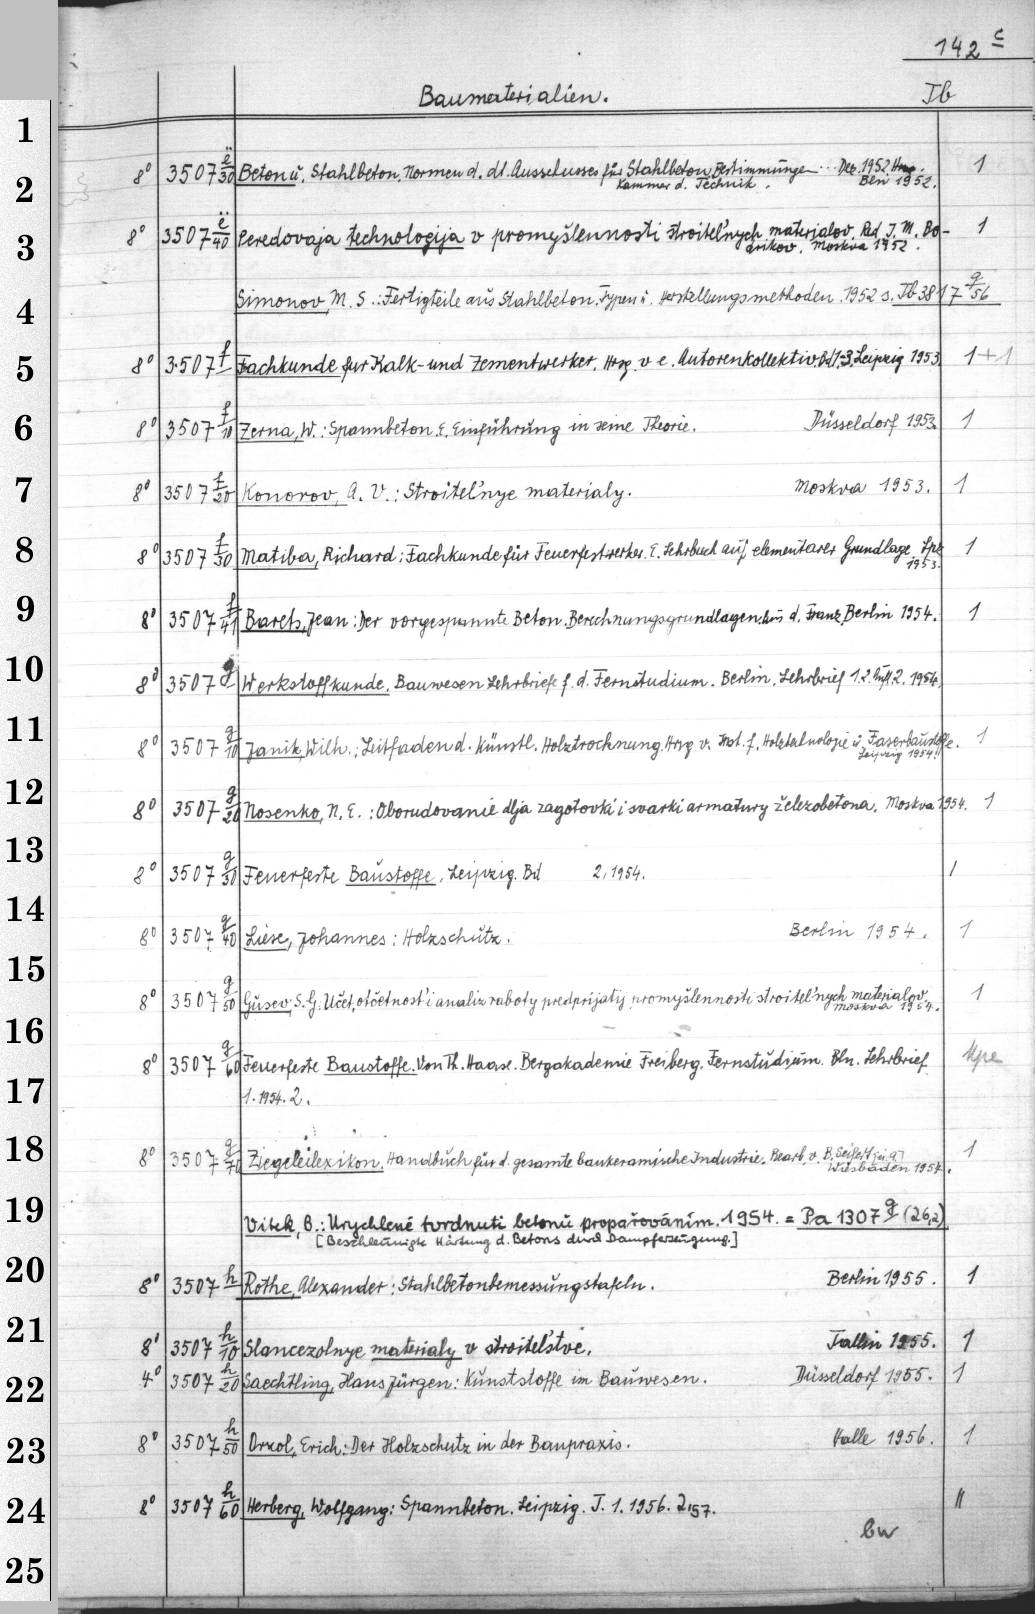 142 c
Baumaterialien. Ib
1
2
3
4
5
6
7
8
9
10
11
12
13
14
15
16
17
18
19
20
21
22
23
24
25
8° 3507 ë/30 Beton u. Stahlbeton. Normen d. dt. Ausschusses für Stahlbeton. Bestimmungen ... Dez. 1952. Hrsg. 1
Kammer d. Technik. Bln 1952.
8° 3507 ë/40 Peredovaja technologija v promyšlennosti stroitel'nych materialov. Red. I. M. Bo- 1
Moskva 1952.
Simonov, M. S.: Fertigteile aus Stahlbeton. Typen u. Herstellungsmethoden. 1952 s. Ib 3817 g/56
8° 3507 f Fachkunde fur Kalk- und Zementwerker. Hrsg. v. e. Autorenkollektiv. Bd 1-3. Leipzig 1953. 1+1
8° 3507 f/10 Zerna, W.: Spannbeton. E. Einführung in seine Theorie. Düsseldorf 1953. 1
8° 3507 f/20 Konorov, A. V.: Stroitel'nye materialy. Moskva 1953. 1
8° 3507 f/30 Matiba, Richard: Fachkunde für Feuerfestwerker. E. Lehrbuch auf elementarer Grundlage. Lpz 1
1953.
8° 3507 f/41 Barets, Jean: Der vorgespannte Beton. Berechnungsgrundlagen. Aus d. Franz. Berlin 1954. 1
8° 3507 g Werkstoffkunde. Bauwesen Lehrbriefe f. d. Fernstudium. Berlin. Lehrbrief 1.2. Aufl. 2. 1954.
8° 3507 g/10 Janik, Wilh.: Leitfaden d. künstl. Holztrocknung. Hrsg. v. Inst. f. Holztechnologie u. Faserbaustoffe. 1
Leipzig 1954.
8° 3507 g/20 Nosenko, N. E.: Oborudovanie dlja zagotovki i svarki armatury železobetona. Moskva 1954. 1
8° 3507 g/30 Feuerfeste Baustoffe. Leipzig. Bd 2, 1954. 1
8° 3507 g/40 Liese, Johannes: Holzschutz. Berlin 1954. 1
8° 3507 g/50 Gusev, S. G. Učet, otčetnost' i analiz raboty predprijatij promyšlennosti stroitel'nych materialov. 1
Moskva 1954.
8° 3507 g/60 Feuerfeste Baustoffe. Von Th. Haase. Bergakademie Freiberg. Fernstudium. Bln. Lehrbrief
1. 1954. 2.
8° 3507 g/70 Ziegeleilexikon. Handbuch für d. gesamte baukeramische Industrie. Bearb. v. B. Seifert 1
Wiesbaden 1954.
Vitek, B.: Urychlené tvrdnuti betonu propařováním. 1954. = Pa 1307 g (26,2)
[Beschleunigte Härtung d. Betons durch Dampferzeugung.]
8° 3507 h Rothe, Alexander: Stahlbetonbemessungstafeln. Berlin 1955. 1
8° 3507 h/10 Slancezolnye materialy v stroitel'stve. Tallin 1955. 1
4° 3507 h/20 Saechtling, Hans Jürgen: Kunststoffe im Bauwesen. Düsseldorf 1955. 1
8° 3507 h/50 Orxol, Erich: Der Holzschutz in der Baupraxis. Halle 1956. 1
8° 3507 h/60 Herberg, Wolfgang: Spannbeton. Leipzig. T. 1. 1956. 2,57. 11
bw